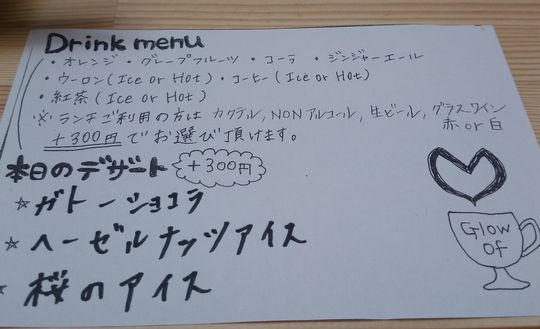 Drink menu
・オレンジ・グレープフルーツ・コーラ・ジンジャーエール
・ウーロン(Ice or Hot)・コーヒー(Ice or Hot)
・紅茶(Ice or Hot)
※ランチご利用の方は カクテル, NONアルコール, 生ビール, グラスワイン
赤 or 白
+300円でお選び頂けます。
本日のデザート +300円
☆ガトーショコラ
☆ヘーゼルナッツアイス
☆桜のアイス
Glow
of